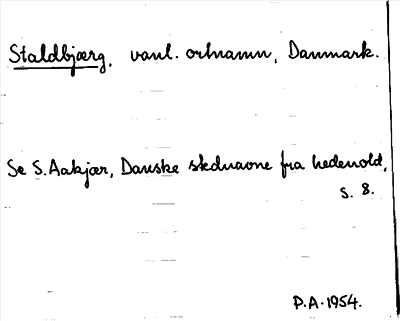 Staldbjærg, vanl. ortnamn, Danmark.
Se S. Aakjær, Danske stednavne fra hedenold,
s. 8.
P.A. 1954.